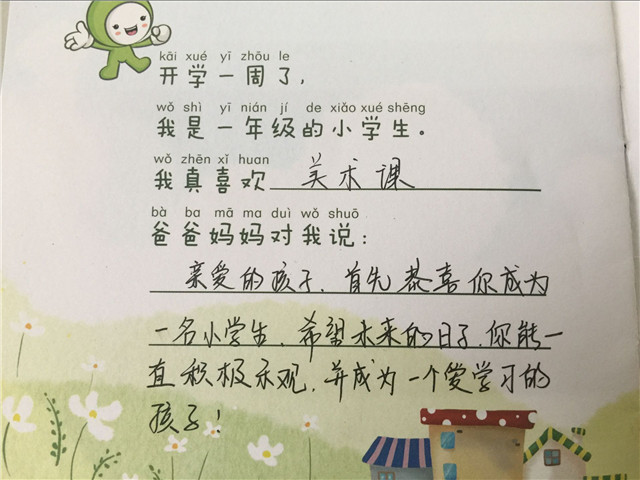 kāi xué yī zhōu le
开学一周了，
wǒ shì yī nián jí de xiǎo xué shēng
我是一年级的小学生。
wǒ zhēn xǐ huan
我真喜欢 美术课
bà ba mā ma duì wǒ shuō
爸爸妈妈对我说：
亲爱的孩子，首先恭喜你成为
一名小学生，希望未来的日子，你能一
直积极乐观，并成为一个爱学习的
孩子！